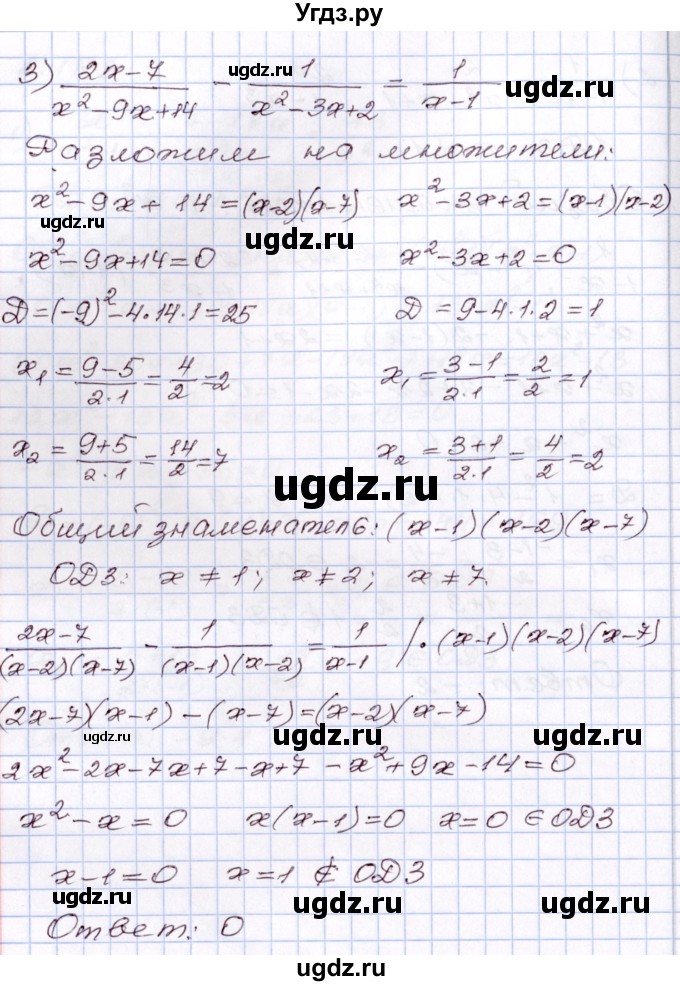 Угдз.ру
3) (2x-7)/(x²-9x+14) - 1/(x²-3x+2) = 1/(x-1)
ugdz.ru ugdz.ru ugdz.ru
Разложим на множители:
x²-9x+14=(x-2)(x-7) x²-3x+2=(x-1)(x-2)
ugdz.ru
x²-9x+14=0 x²-3x+2=0
ugdz.ru
D=(-9)²-4·14·1=25 D=9-4·1·2=1
x₁=(9-5)/(2·1)=4/2=2 x₁=(3-1)/(2·1)=2/2=1
x₂=(9+5)/(2·1)=14/2=7 x₂=(3+1)/(2·1)=4/2=2
ugdz.ru
Общий знаменатель: (x-1)(x-2)(x-7)
ОДЗ: x≠1; x≠2; x≠7.
(2x-7)/((x-2)(x-7)) - 1/((x-1)(x-2)) = 1/(x-1) /·(x-1)(x-2)(x-7)
ugdz.ru
(2x-7)(x-1)-(x-7)=(x-2)(x-7)
ugdz.ru ugdz.ru
2x²-2x-7x+7-x+7-x²+9x-14=0
x²-x=0 x(x-1)=0 x=0 ∈ ОДЗ
ugdz.ru
x-1=0 x=1 ∉ ОДЗ
ugdz.ru ugdz.ru ugdz.ru
Ответ: 0
ugdz.ru